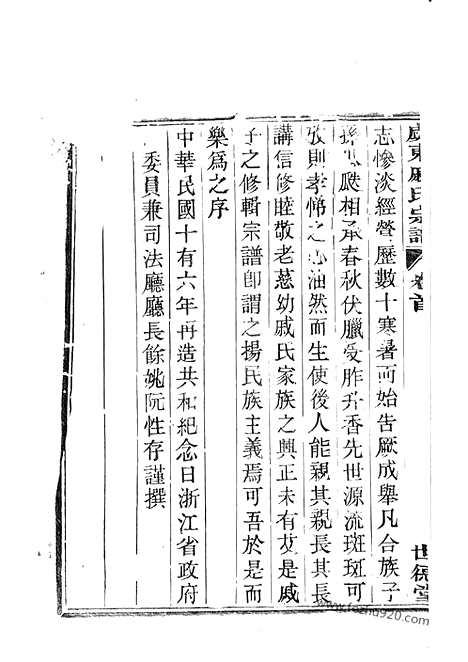 東戚氏宗譜 卷首 世德堂
志慘淡經營歷數十寒暑而始告厥成舉凡合族子
孫 颷相承春秋伏臘受胙升香先世源流斑斑可
攷則孝悌之心油然而生使後人能親其親長其長
講信修睦敬老慈幼戚氏家族之興正未有艾是戚
子之修輯宗譜卽謂之揚民族主義焉可吾於是而
樂爲之序
中華民國十有六年再造共和紀念日浙江省政府
委員兼司法廳廳長餘姚阮性存謹撰
www.fozhu920.com